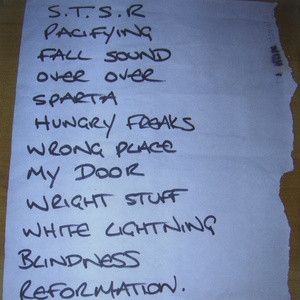 S.T.S.R
PACIFYING
FALL SOUND
OVER OVER
SPARTA
HUNGRY FREAKS
WRONG PLACE
MY DOOR
WRIGHT STUFF
WHITE LIGHTNING
BLINDNESS
REFORMATION.